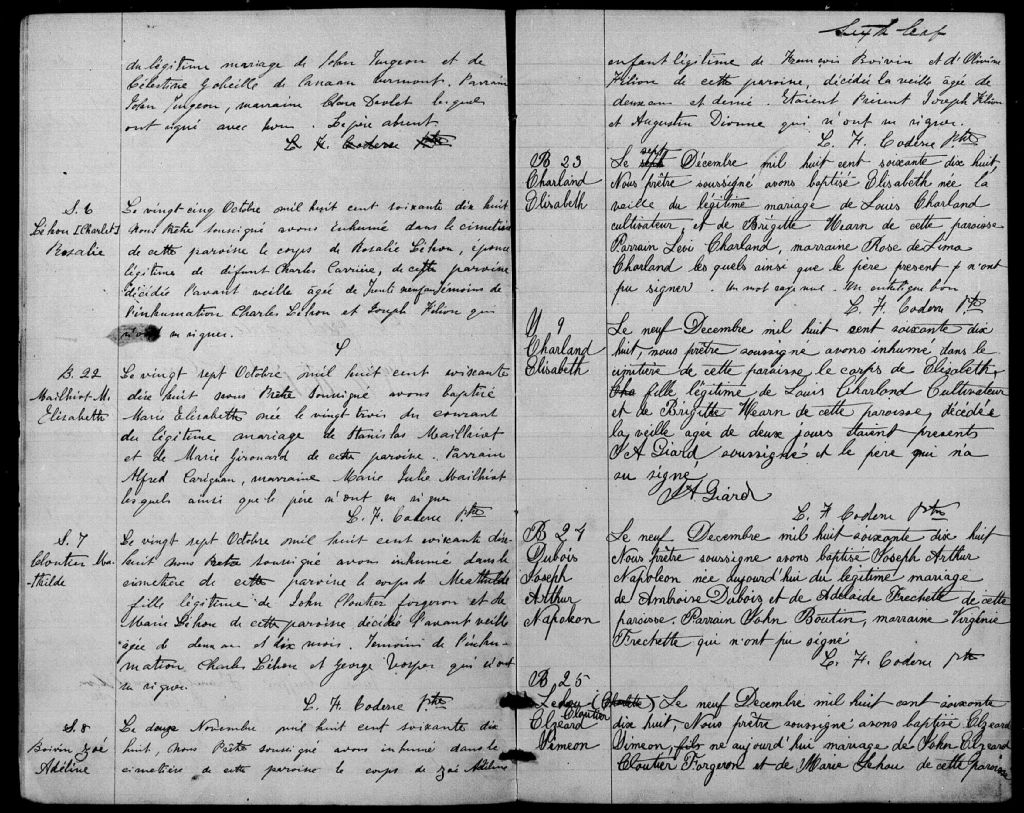 du légitime mariage de John Turgeon et de
Célestine Goheille de Canaan Vermont. Parrain
John Turgeon, marraine Clara lesquels
ont signé avec nous. Le père absent.
L. H. Coderre Ptre
S. 6
Léhou [Charlet]
Rosalie
Le vingt cinq Octobre mil huit cent soixante dix huit
nous Prêtre soussigné avons inhumé dans le cimetière
de cette paroisse le corps de Rosalie Léhou, épouse
légitime de difunt Charles Carrière, de cette paroisse
décidée l'avant veille agée de Trente neuf ans témoins de
l'inhumation Charles Léhou et Joseph Filion qui
n'ont su signer.
L
B. 22
Mailhiot M.
Elisabeth
Le vingt sept Octobre mil huit cent soixante
dix huit nous Prêtre soussigné avons baptisé
Marie Elisabeth née le vingt trois du courant
du légitime mariage de Stanislas Mailhiot
et de Marie Girouard de cette paroisse. Parrain
Alfred Carignan, marraine Marie Julie Mailhiot
lesquels ainsi que le père n'ont su signer
L. H. Coderre Ptre
S. 7
Cloutier Ma-
thilde
Le vingt sept Octobre mil huit cent soixante dix-
huit nous Prêtre soussigné avons inhumé dans le
cimetière de cette paroisse le corps de Meathilde
fille légitime de John Cloutier forgeron et de
Marie Léhou de cette paroisse décidée l'avant veille
agée de deux ans et dix mois. Temoins de l'inhu-
mation Charles Léhou et George Vosper qui n'ont
su signer.
L. H. Coderre Ptre
S. 8
Boivin Zoé
Adéline
Le douze Novembre mil huit cent soixante dix
huit, nous Prêtre soussigné avons inhumé dans le
cimetière de cette paroisse le corps de Zoé Adéline
Sixth leaf
enfant légitime de François Boivin et d'Olivine
Filion de cette paroisse, décidée la veille agée de
deux ans et demie. Etaient présent Joseph Filion
et Augustin Dionne qui n'ont su signer.
L. H. Coderre Ptre
B 23
Charland
Elisabeth
sept
Le Décembre mil huit cent soixante dix huit,
Nous prêtre soussigné avons baptisé Elisabeth née la
veille du légitime mariage de Louis Charland
cultivateur, et de Brigitte Hearn de cette paroisse
Parrain Levi Charland, marraine Rose de Lima
Charland lesquels ainsi que le père present n'ont
pu signer. Un mot rayé nul. Un bon
L. H. Coderre Ptre
9
Charland
Elisabeth
Le neuf Decembre mil huit cent soixante dix
huit, nous prêtre soussigné avons inhumé dans le
cimitière de cette paroisse, le corps de Elizabeth,
fille légitime de Louis Charland Cultivateur
et de Brigitte Hearn de cette paroisse, décédée
la veille agée de deux jours étaient presents
J A Giard soussigné et le père qui n'a
su signé
J A Giard
L. H. Coderre Ptre
B 24
Dubois
Joseph
Arthur
Napoleon
Le neuf Decembre mil huit soixante dix huit
Nous prêtre soussigne avons baptisé Joseph Arthur
Napoleon née aujourd'hui du légitime mariage
de Ambroise Dubois et de Adélaide Frechette de cette
paroisse. Parrain John Boutin, marraine Virginie
Frechette qui n'ont pu signé
L. H. Coderre Ptre
B 25
Cloutier
Elzeard
Simeon
Le neuf Decembre mil huit cent soixante
dix huit, Nous prêtre soussigné avons baptisé Elzeard
Simeon, fils né aujourd'hui mariage de John Elzeard
Cloutier Forgeron et de Marie Lehou de cette paroisse